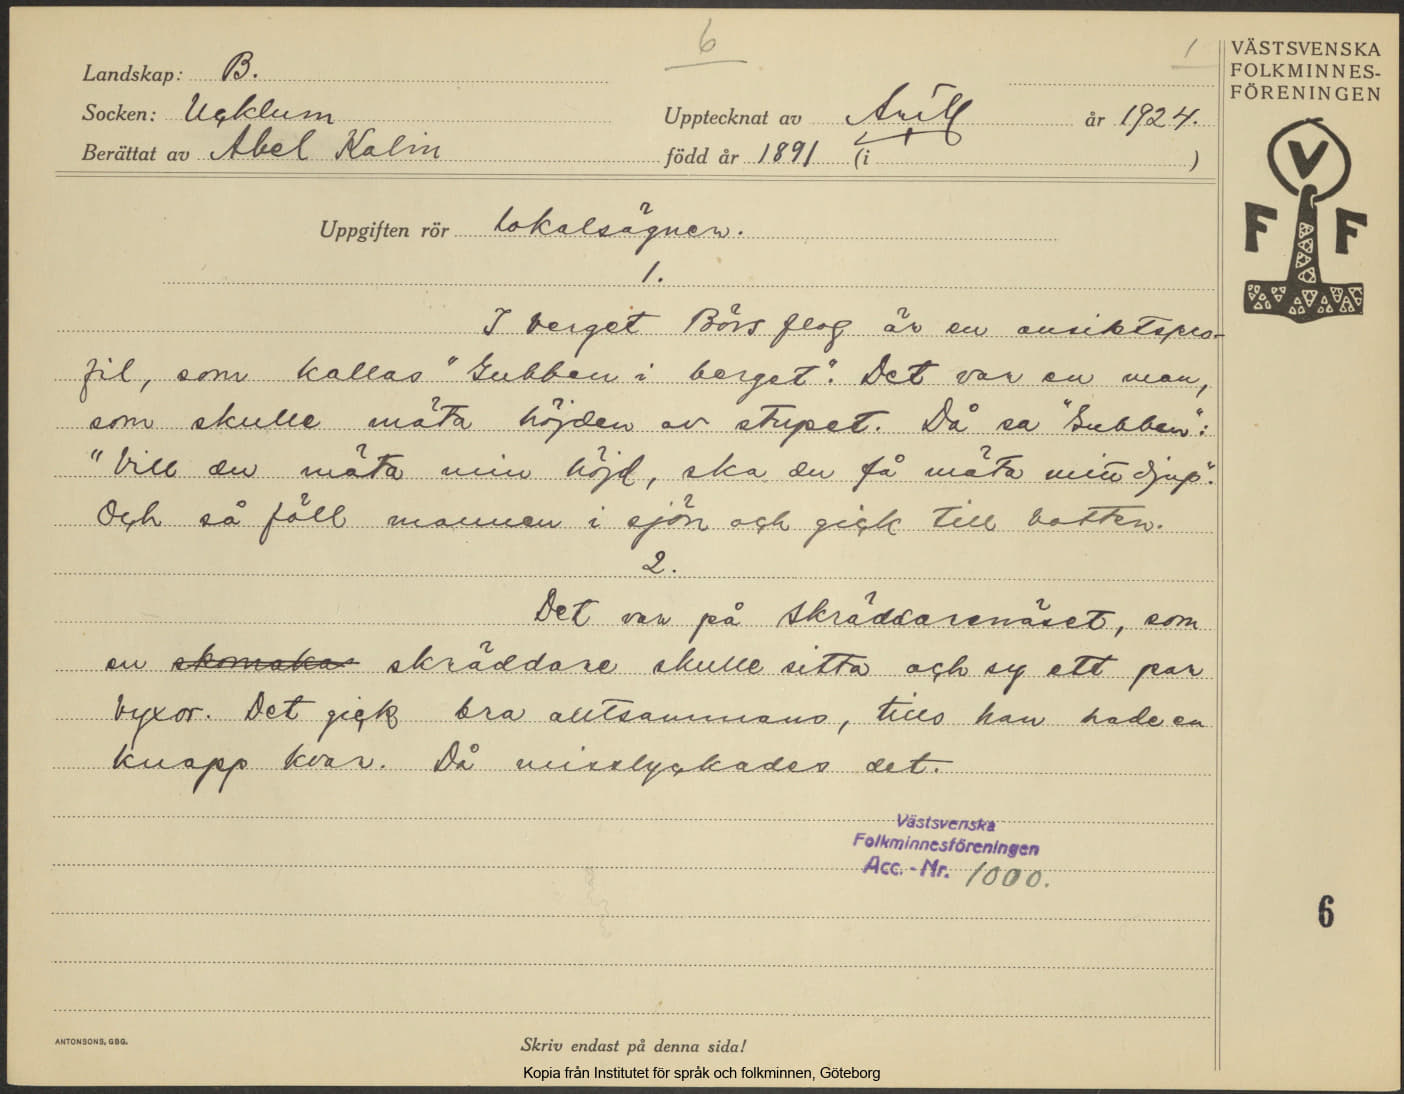 6
1
Landskap: B.
Socken: Ucklum
Upptecknat av Arill år 1924.
Berättat av Abel Kalin
född år 1891 (i )
Uppgiften rör Lokalsägner.
1.
I berget Börs flog är en ansiktspro-
fil, som kallas "Gubben i berget". Det var en man,
som skulle mäta höjden av stupet. Då sa "Gubben":
"Vill du mäta min höjd, ska du få mäta min djup".
Och så föll mannen i sjön och gick till botten.
2.
Det var på Skräddarenäset, som
en skomakar skräddare skulle sitta och sy ett par
byxor. Det gick bra alltsammans, tills han hade en
knapp kvar. Då misslyckades det.
Västsvenska
Folkminnesföreningen
Acc. - Nr. 1000.
ANTONSONS, GBG.
Skriv endast på denna sida!
Kopia från Institutet för språk och folkminnen, Göteborg
VÄSTSVENSKA
FOLKMINNES-
FÖRENINGEN
V
F F
6